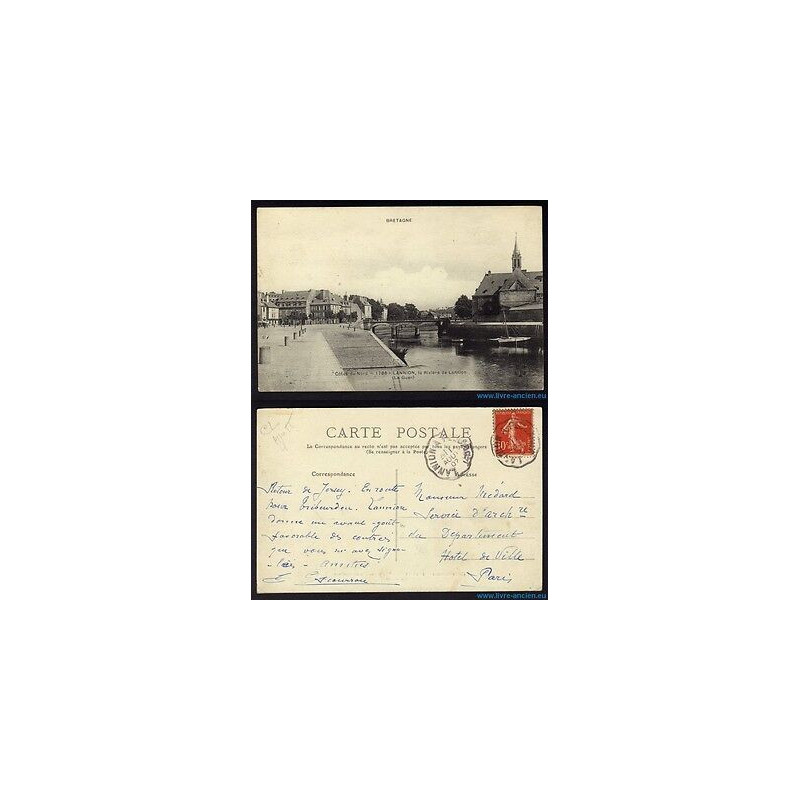 BRETAGNE
Côtes du Nord - LANNION, la Rivière de Lannion
(Le Guer)
www.livre-ancien.eu
CARTE POSTALE
La Correspondance au recto n'est pas acceptée par tous les pays étrangers
(Se renseigner à la Poste)
LANNION
Correspondance
Adresse
Retour de Jersey. En route
pour Trébeurden. Lannion
donne un avant-goût
favorable des contrées
que vous m'avez signa-
lées - amitiés
Monsieur Médard
Service d'Arch re
du Département
Hotel de Ville
Paris
www.livre-ancien.eu